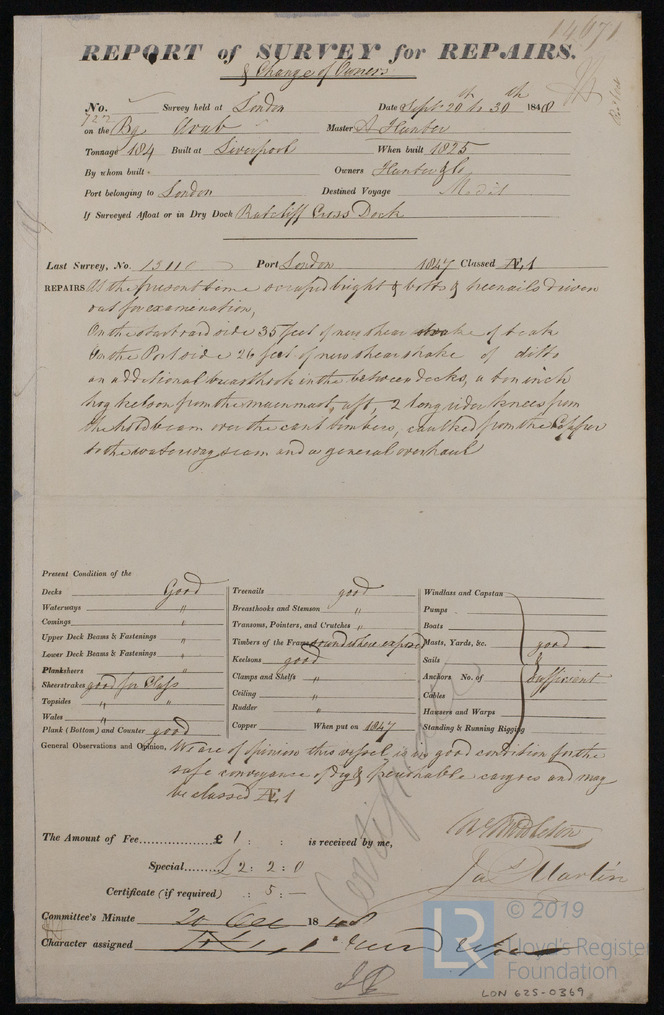 14671
REPORT of SURVEY for REPAIRS.
& Change of Owners
No. 722 Survey held at London Date Sept. 20th to 30th 1848
on the Bg Arab Master A Hunter
Tonnage 184 Built at Liverpool When built 1825
By whom built Owners Hunter & Co
Port belonging to London Destined Voyage Medit
If Surveyed Afloat or in Dry Dock Ratcliff Cross Dock
Last Survey, No. Port London 1847 Classed Æ1
REPAIRS At the present time scraped bright & bolts & treenails driven
out for examination,
On the starboard side 35 feet of new shear strake of teak
On the Port side 26 feet of new shear strake of ditto
an additional breasthook in the between decks, a ten inch
hog kelson from the mainmast, aft, 2 long rider knees from
the hold beam over the cant timbers, caulked from the Copper
to the waterway seam and a general overhaul
Present Condition of the
Decks Good
Waterways "
Comings "
Upper Deck Beams & Fastenings "
Lower Deck Beams & Fastenings "
Planksheers "
Sheerstrakes good for Class
Topsides " "
Wales " "
Plank (Bottom) and Counter good
Treenails good
Breasthooks and Stemson "
Transoms, Pointers, and Crutches "
Timbers of the Frame sound where exposed
Keelsons good
Clamps and Shelfs "
Ceiling "
Rudder "
Copper When put on 1847
Windlass and Capstan
Pumps
Boats
Masts, Yards, &c. good
Sails &
Anchors No. of Sufficient
Cables
Hausers and Warps
Standing & Running Rigging
General Observations and Opinion, We are of opinion this vessel is in good condition for the
safe conveyance of dry & perishable cargoes and may
be classed Æ1
The Amount of Fee £ 1 : : is received by me,
Special £2 : 2 : 0
Certificate (if required) : 5 : —
Wm Middleton
Jas Martin
Committee's Minute 20 Oct 1848
Character assigned
LR
© 2019
Lloyd's Register
Foundation
LON 625-0369